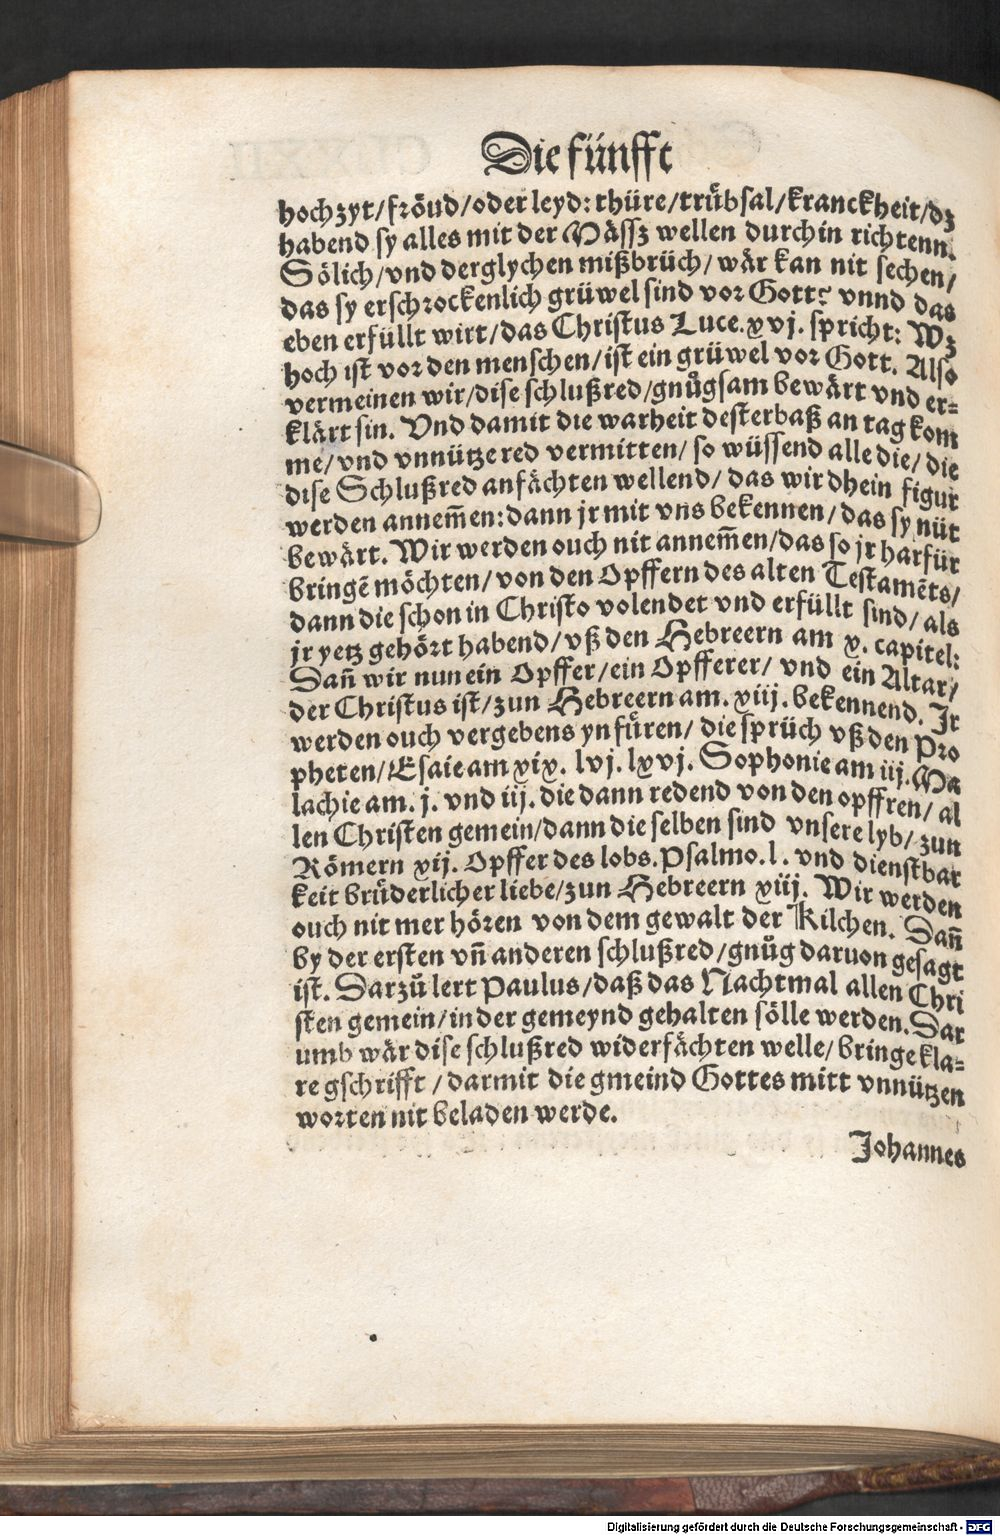 Die fünfft
hochzyt/fröud/oder leyd: thüre/trůbsal/kranckheit/dz
habend sy alles mit der Mässz wellen durchin richtenn.
Sölich/vnd derglychen mißbrüch/wär kan nit sechen/
das sy erschrockenlich grüwel sind vor Gott? vnnd das
eben erfüllt wirt/das Christus Luce.xvj. spricht: Wz
hoch ist vor den menschen/ist ein grüwel vor Gott. Also
vermeinen wir/dise schlußred/gnůgsam bewärt vnd er-
klärt sin. Vnd damit die warheit desterbaß an tag kom
me/vnd vnnütze red vermitten/so wüssend alle die/die
dise Schlußred anfächten wellend/das wir dhein figur
werden annem̃en: dann jr mit vns bekennen/das sy nüt
bewärt. Wir werden ouch nit annem̃en/das so jr harfür
bringẽ möchten/von den Opffern des alten Testamẽts/
dann die schon in Christo volendet vnd erfüllt sind/als
jr yetz gehört habend/vß den Hebreern am x. capitel:
Dañ wir nun ein Opffer/ein Opfferer/vnd ein Altar/
der Christus ist/zun Hebreern am. xiij. bekennend. Jr
werden ouch vergebens ynfüren/die sprüch vß den Pro
pheten/Esaie am xix. lvj. lxvj. Sophonie am iij. Ma
lachie am. j. vnd iij. die dann redend von den opffren/al
len Christen gemein/dann die selben sind vnsere lyb/zun
Römern xij. Opffer des lobs. Psalmo. l. vnd dienstbar
keit brüderlicher liebe/zun Hebreern xiij. Wir werden
ouch nit mer hören von dem gewalt der Kilchen. Dañ
by der ersten vñ anderen schlußred/gnůg daruon gesagt
ist. Darzů lert Paulus/daß das Nachtmal allen Chri
sten gemein/in der gemeynd gehalten sölle werden. Dar
umb wär dise schlußred widerfächten welle/bringe kla-
re gschrifft/darmit die gmeind Gottes mitt vnnützen
worten nit beladen werde.
Johannes
Digitalisierung gefördert durch die Deutsche Forschungsgemeinschaft - DFG